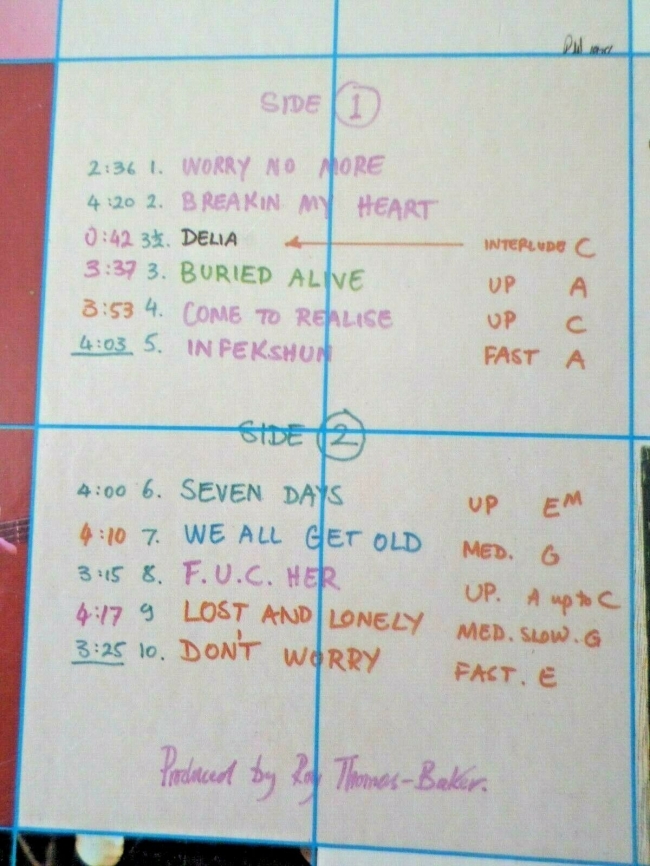 SIDE 1
2:36 1. WORRY NO MORE
4:20 2. BREAKIN MY HEART
0:42 3½. DELIA INTERLUDE C
3:37 3. BURIED ALIVE UP A
3:53 4. COME TO REALISE UP C
4:03 5. INFEKSHUN FAST A
SIDE 2
4:00 6. SEVEN DAYS UP EM
4:10 7. WE ALL GET OLD MED. G
3:15 8. F.U.C. HER UP. A up to C
4:17 9 LOST AND LONELY MED. SLOW. G
3:25 10. DON'T WORRY FAST. E
Produced by Roy Thomas-Baker.